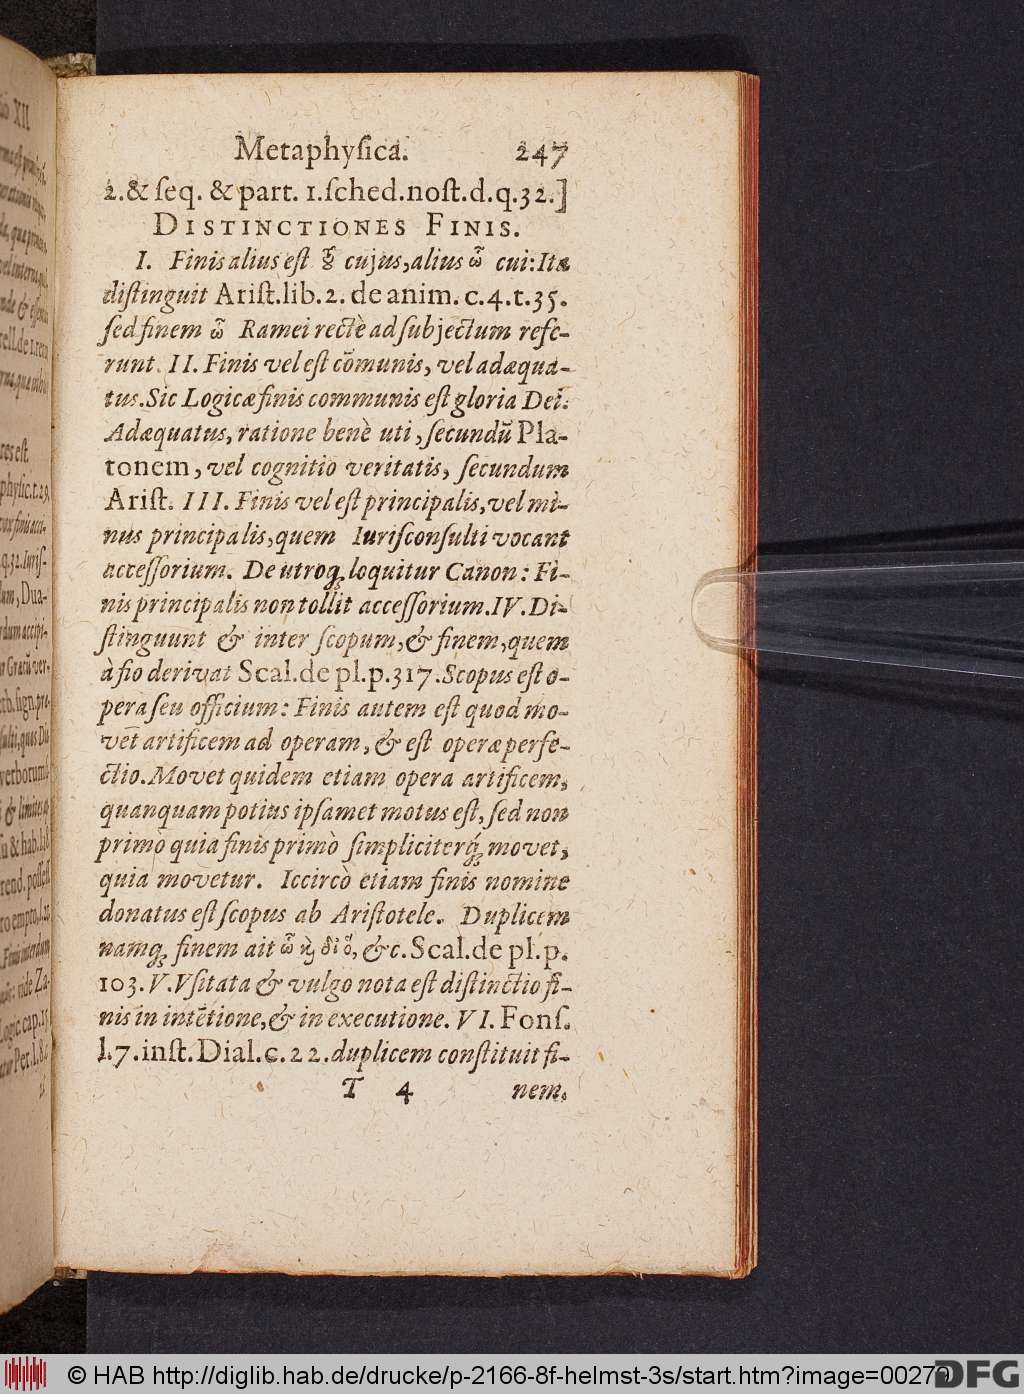 Metaphyſica. 247
2. & ſeq. & part. 1. ſched. noſt. d. q. 32.]
DISTINCTIONES FINIS.
I. Finis alius eſt cujus, alius ᾧ cui: Ita
diſtinguit Ariſt. lib. 2. de anim. c. 4. t. 35.
ſed finem ᾧ Ramei rectè ad ſubjectum refe-
runt. II. Finis vel eſt cōmunis, vel adæqua-
tus. Sic Logicæ finis communis eſt gloria Dei.
Adæquatus, ratione benè uti, ſecundũ Pla-
tonem, vel cognitio veritatis, ſecundum
Ariſt. III. Finis vel eſt principalis, vel mi-
nus principalis, quem Iuriſconſulti vocant
acceſſorium. De utroq; loquitur Canon: Fi-
nis principalis non tollit acceſſorium. IV. Di-
ſtinguunt & inter ſcopum, & finem, quem
à fio derivat Scal. de pl. p. 317. Scopus eſt o-
pera ſeu officium: Finis autem eſt quod mo-
vet artificem ad operam, & eſt operæ perfe-
ctio. Movet quidem etiam opera artificem,
quanquam potius ipſamet motus eſt, ſed non
primò quia finis primò ſimpliciterq́; movet,
quia movetur. Iccircò etiam finis nomine
donatus eſt ſcopus ab Ariſtotele. Duplicem
namq; finem ait ᾧ ϗ δι' ὅ, &c. Scal. de pl. p.
103. V. Vſitata & vulgo nota eſt diſtinctio fi-
nis in intētione, & in executione. VI. Fonſ.
l. 7. inſt. Dial. c. 22. duplicem conſtituit fi-
T 4 nem.
© HAB http://diglib.hab.de/drucke/p-2166-8f-helmst-3s/start.htm?image=00279
DFG